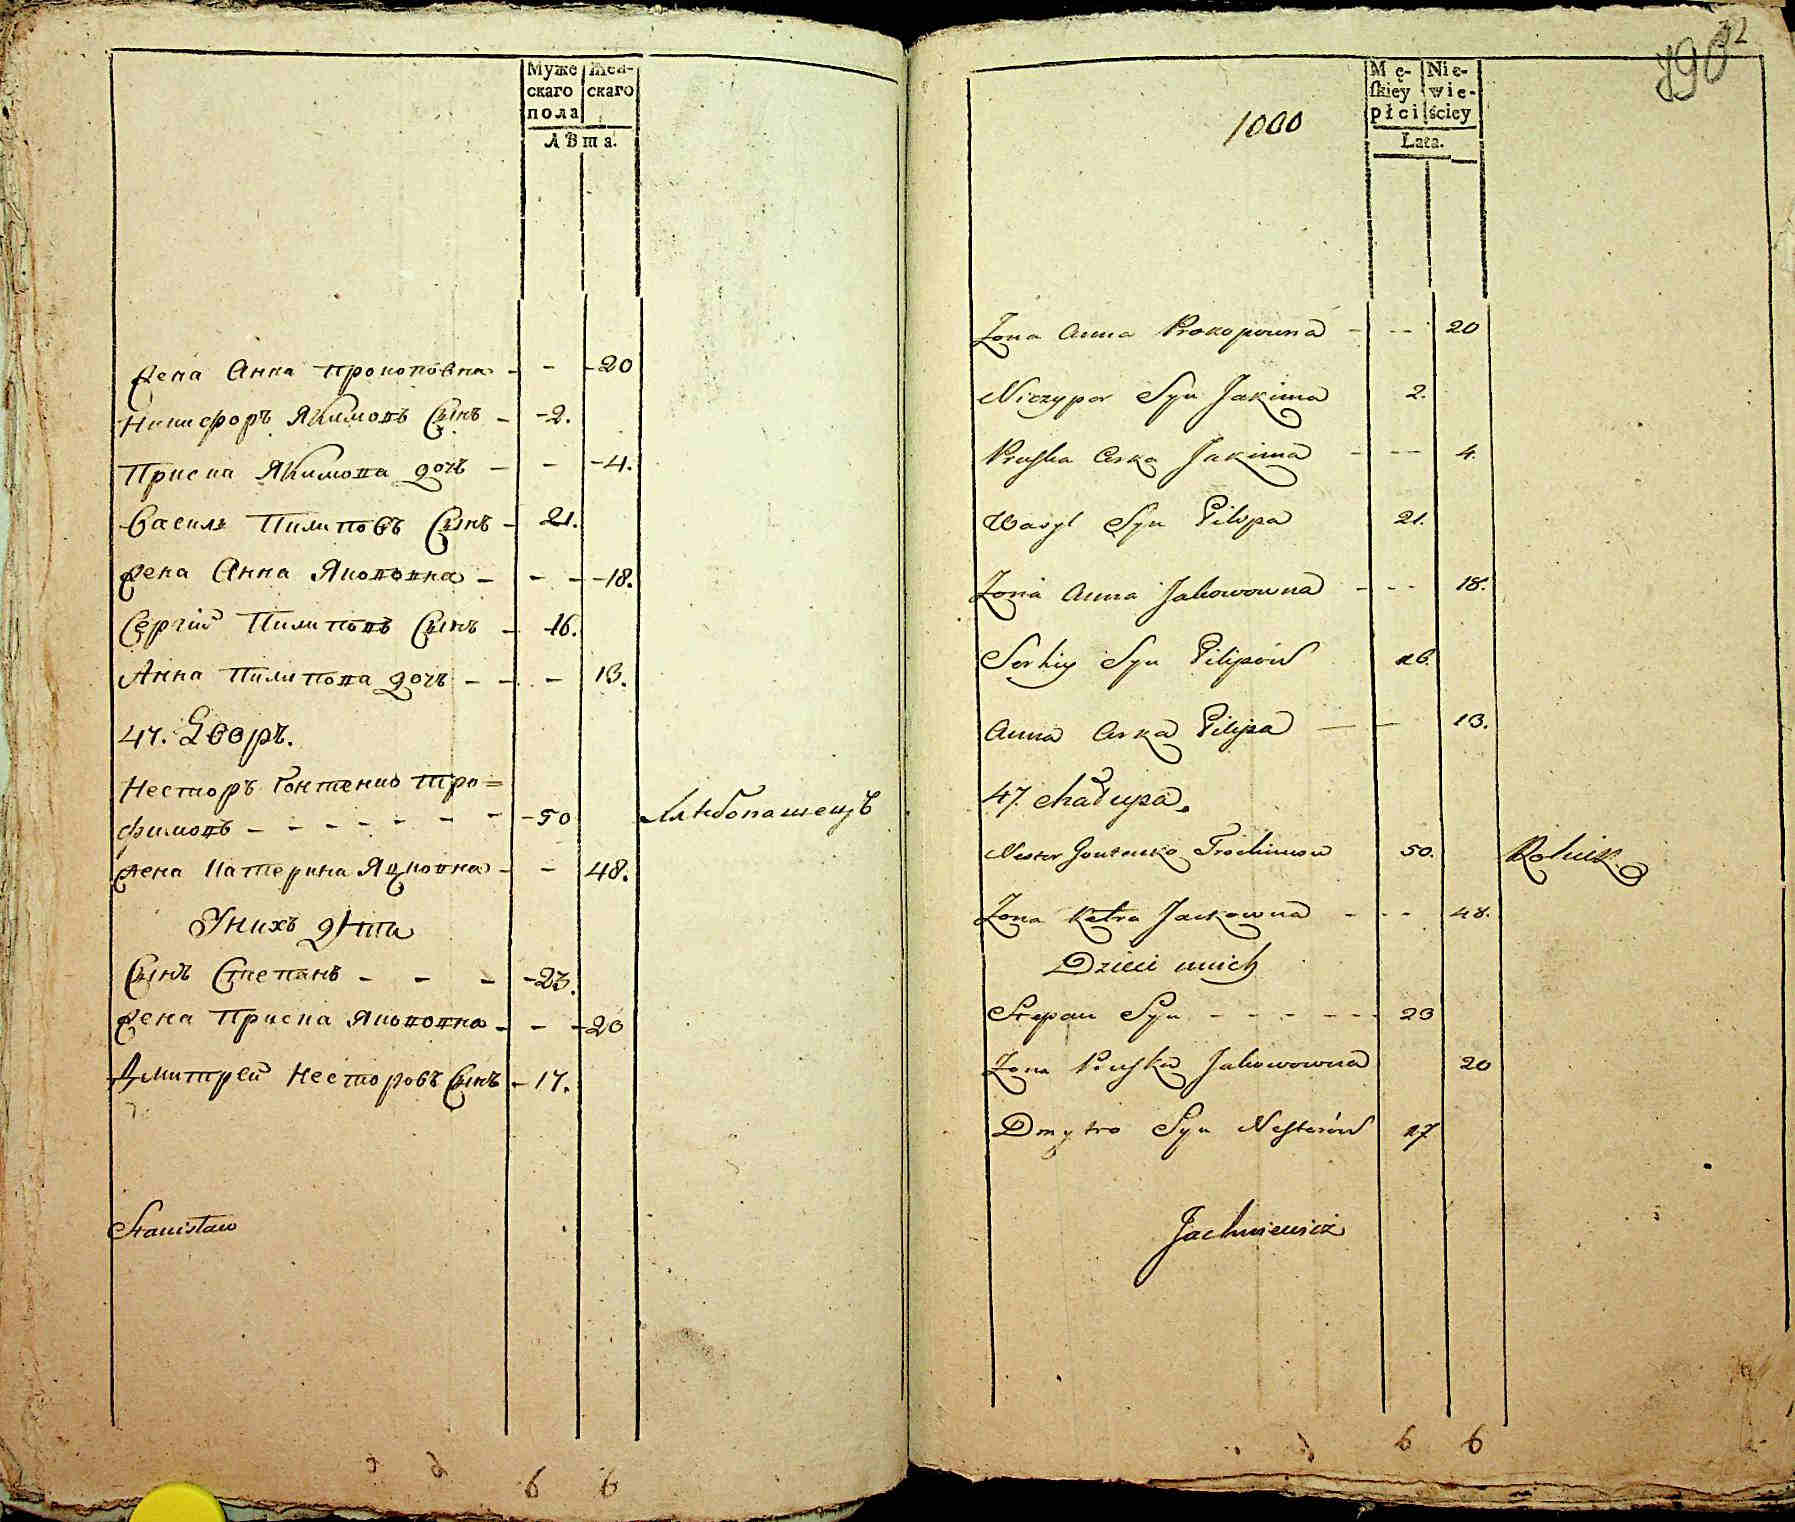 Муже
скаго
пола
Жен-
скаго
Лѣта.
жена Анна Прокоповна - - - 20
Никифоръ Якимовъ Сынъ - - 2.
Приска Якимова дочь - - - 4.
Василь Пилиповъ Сынъ - 21.
жена Анна Якововна - - - - 18.
Сергій Пилиповъ Сынъ - 16.
Анна Пилипова дочь - - - 13.
47. Дворъ.
Несторъ Гонтенко Тро=
фимовъ - - - - - - - - 50
Хлѣбопашецъ
жена Катерина Яцковна - - 48.
Унихъ дѣти
Сынъ Степанъ - - - - 23.
жена Приска Якововна - - - 20
Дмитрей Несторовъ Сынъ - 17.
Stanisław
6 6
32
790
1000
Mę-
skiey
płci
Nie-
wie-
ściey
Lata.
Żona Anna Prokopowna - -- 20
Niczypor Syn Jakima 2.
Pruska Corka Jakima - -- 4.
Wasyl Syn Pilipa 21.
Żona Anna Jakowowna - -- 18.
Serhiy Syn Pilipów 16.
Anna Corka Pilipa - - 13.
47. Chałupa.
Nester Gontenko Trochimow 50. Rolnik
Żona Katra Jackowna - - - 48.
Dzieci unich
Stepan Syn - - - - - - 23
Żona Pruska Jakowowna 20
Dmytro Syn Nesterów 17
Jachniewicz
6 6